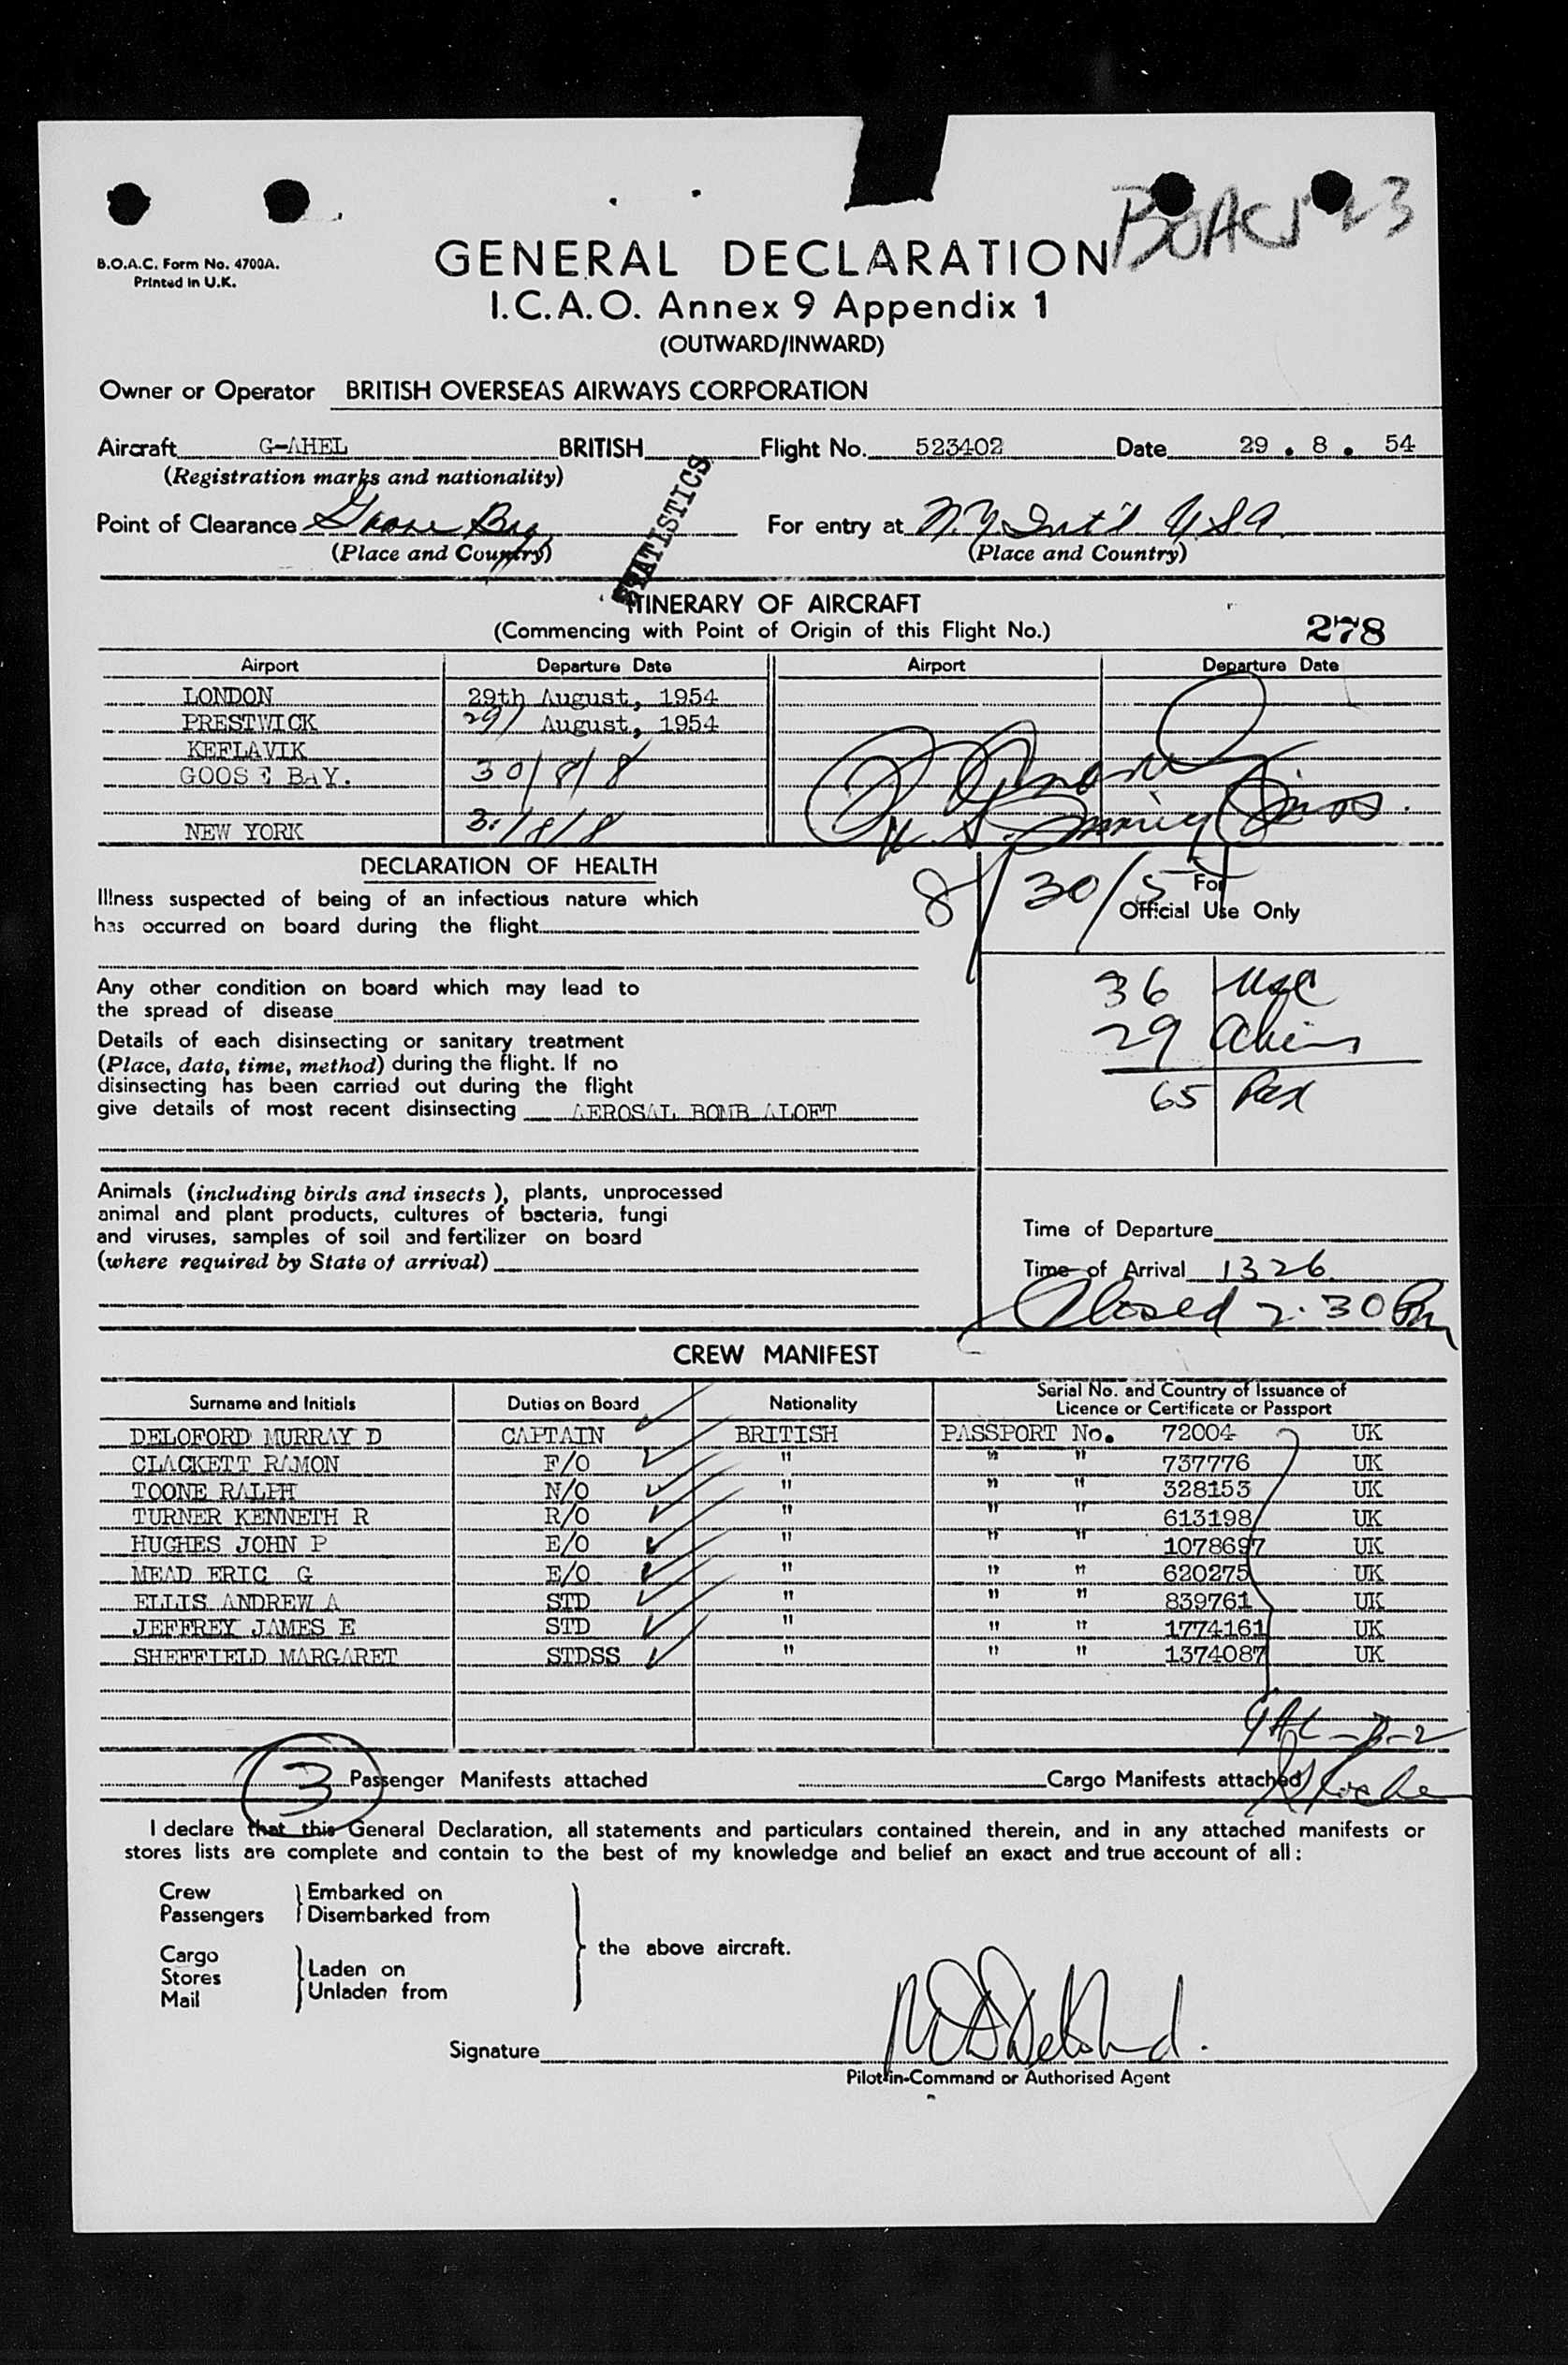 BOAC 523
B.O.A.C. Form No. 4700A.
Printed in U.K.
GENERAL DECLARATION
I.C.A.O. Annex 9 Appendix 1
(OUTWARD/INWARD)
Owner or Operator BRITISH OVERSEAS AIRWAYS CORPORATION
Aircraft G-AHEL BRITISH Flight No. 523402 Date 29 . 8 . 54
(Registration marks and nationality)
STATISTICS
Point of Clearance Goose Bay For entry at N.Y. Int'l USA
(Place and Country) (Place and Country)
ITINERARY OF AIRCRAFT
(Commencing with Point of Origin of this Flight No.) 278
Airport Departure Date Airport Departure Date
LONDON 29th August, 1954
PRESTWICK 29/ August, 1954
KEFLAVIK
GOOSE BAY. 30/8/8
NEW YORK 3./8/8
DECLARATION OF HEALTH
8/30/5
For
Official Use Only
Illness suspected of being of an infectious nature which
has occurred on board during the flight
Any other condition on board which may lead to
the spread of disease
36 USC
29 Aliens
65 Pax
Details of each disinsecting or sanitary treatment
(Place, date, time, method) during the flight. If no
disinsecting has been carried out during the flight
give details of most recent disinsecting AEROSAL BOMB ALOFT
Animals (including birds and insects), plants, unprocessed
animal and plant products, cultures of bacteria, fungi
and viruses, samples of soil and fertilizer on board
(where required by State of arrival)
Time of Departure
Time of Arrival 1326
Closed 2.30 Pm
CREW MANIFEST
Surname and Initials Duties on Board Nationality Serial No. and Country of Issuance of
Licence or Certificate or Passport
DELOFORD MURRAY D CAPTAIN BRITISH PASSPORT No. 72004 UK
CLACKETT RAMON F/O " " " 737776 UK
TOONE RALPH N/O " " " 328153 UK
TURNER KENNETH R R/O " " " 613198 UK
HUGHES JOHN P E/O " " " 1078697 UK
MEAD ERIC G E/O " " " 620275 UK
ELLIS ANDREW A STD " " " 839761 UK
JEFFREY JAMES E STD " " " 1774161 UK
SHEFFIELD MARGARET STDSS " " " 1374087 UK
3 Passenger Manifests attached Cargo Manifests attached
I declare that this General Declaration, all statements and particulars contained therein, and in any attached manifests or
stores lists are complete and contain to the best of my knowledge and belief an exact and true account of all :
Crew Embarked on
Passengers Disembarked from
the above aircraft.
Cargo
Stores Laden on
Mail Unladen from
Signature
Pilot-in-Command or Authorised Agent